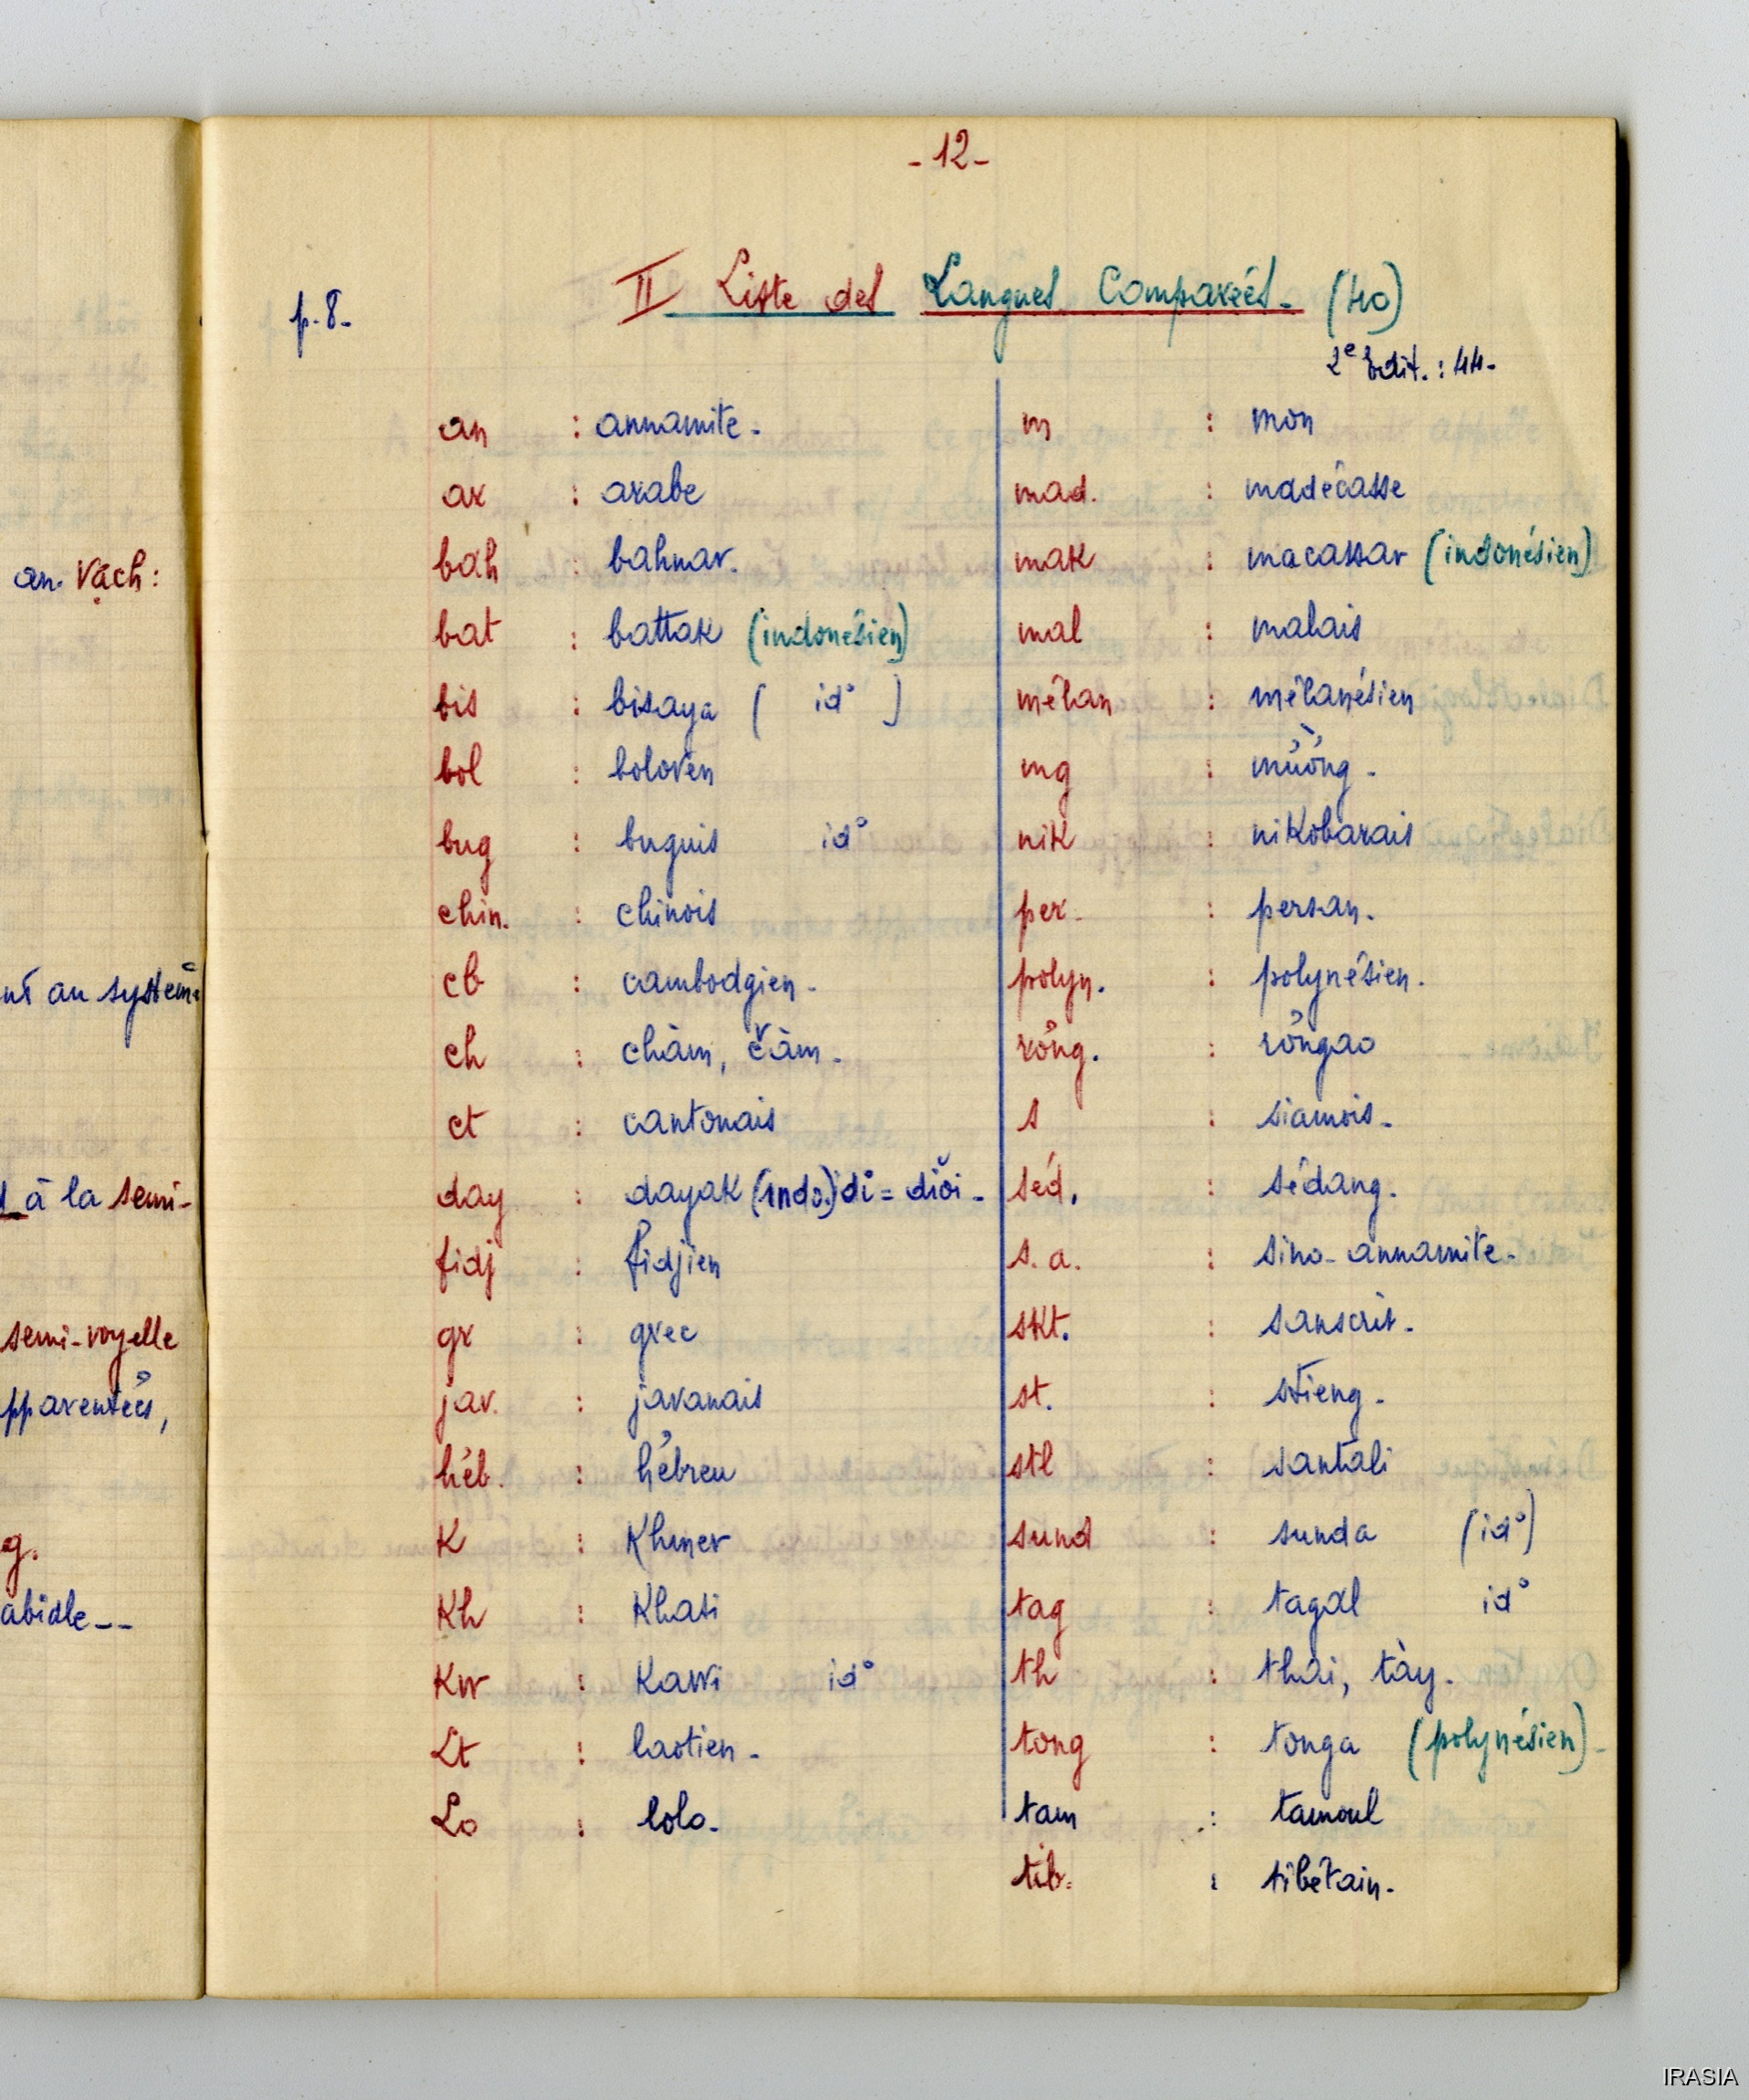 - 12 -
p. 8 -
II Liste des Langues Comparées - (40)
2e Edit. : 44 -
an : annamite -
ar : arabe
bah : bahnar.
bat : battak (indonésien)
bis : bisaya ( id° )
bol : boloven
bug : buguis id°
chin. : chinois
cb : cambodgien -
ch : chàm, čàm -
ct : cantonais
day : dayak (indo.) di = diŏi -
fidj : fidjien
gr : grec
jav. : javanais
héb. : hébreu
K : Khmer
Kh : Khasi
Kw : Kawi id°
Lt : laotien -
Lo : lolo -
m : mon
mad. : madécasse
mak : macassar (indonésien)
mal : malais
mélan : mélanésien
mg : mường -
nik : nikobarais
per - : persan.
polyn. : polynésien.
röng. : röngao
s : siamois -
séd. : sédang.
s. a. : sino-annamite -
skt. : sanscrit -
st. : stieng -
stl : santali
sund : sunda (id°)
tag : tagal id°
th : thai, tày -
tong : tonga (polynésien) -
tam : tamoul
tib. : tibétain -
an. Vạch :
au système
à la semi-
semi-voyelle
g.
IRASIA